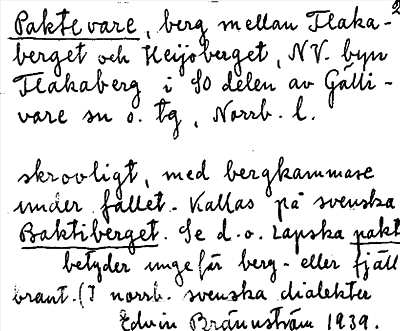 Paktevare, berg mellan Flaka-
berget och Heijoberget, NV. byn
Flakaberg i SO delen av Gälli-
vare sn o. tg, Norrb. l.
skrovligt, med bergkammare
under fallet. Kallas på svenska
Baktiberget. Se d. o. Lapska pakt
betyder ungefär berg- eller fjäll
brant. (I norrb. svenska dialekter
Edvin Brännström 1939.